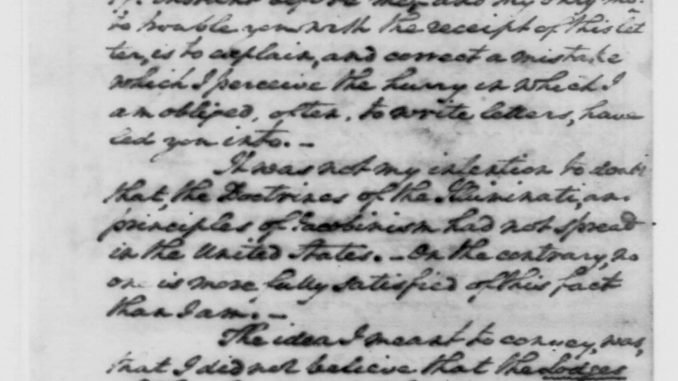 instant before me, and my only mo
to trouble you with the receipt of this let
ter, is to explain, and correct a mistake
which I perceive the hurry in which I
am obliged, often, to write letters, have
led you into. –
It was not my intention to doubt
that, the Doctrines of the Illuminati, an
principles of Jacobinism had not spread
in the United States. – On the contrary, no
one is more fully satisfied of this fact
than I am. –
The idea I meant to convey, was,
that I did not believe that the Lodges